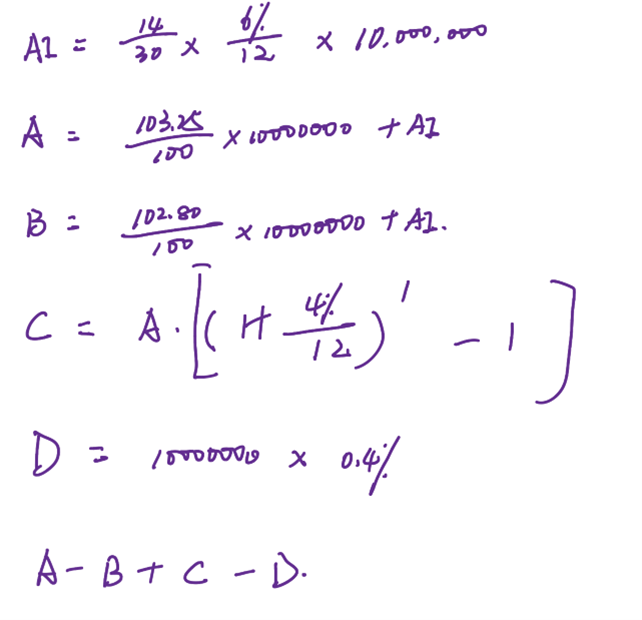 AI = 14/30 × 6%/12 × 10,000,000
A = 103.25/100 × 10000000 + AI
B = 102.80/100 × 10000000 + AI.
C = A · [(1+ 4%/12)^1 - 1]
D = 10000000 × 0.4%
A - B + C - D.